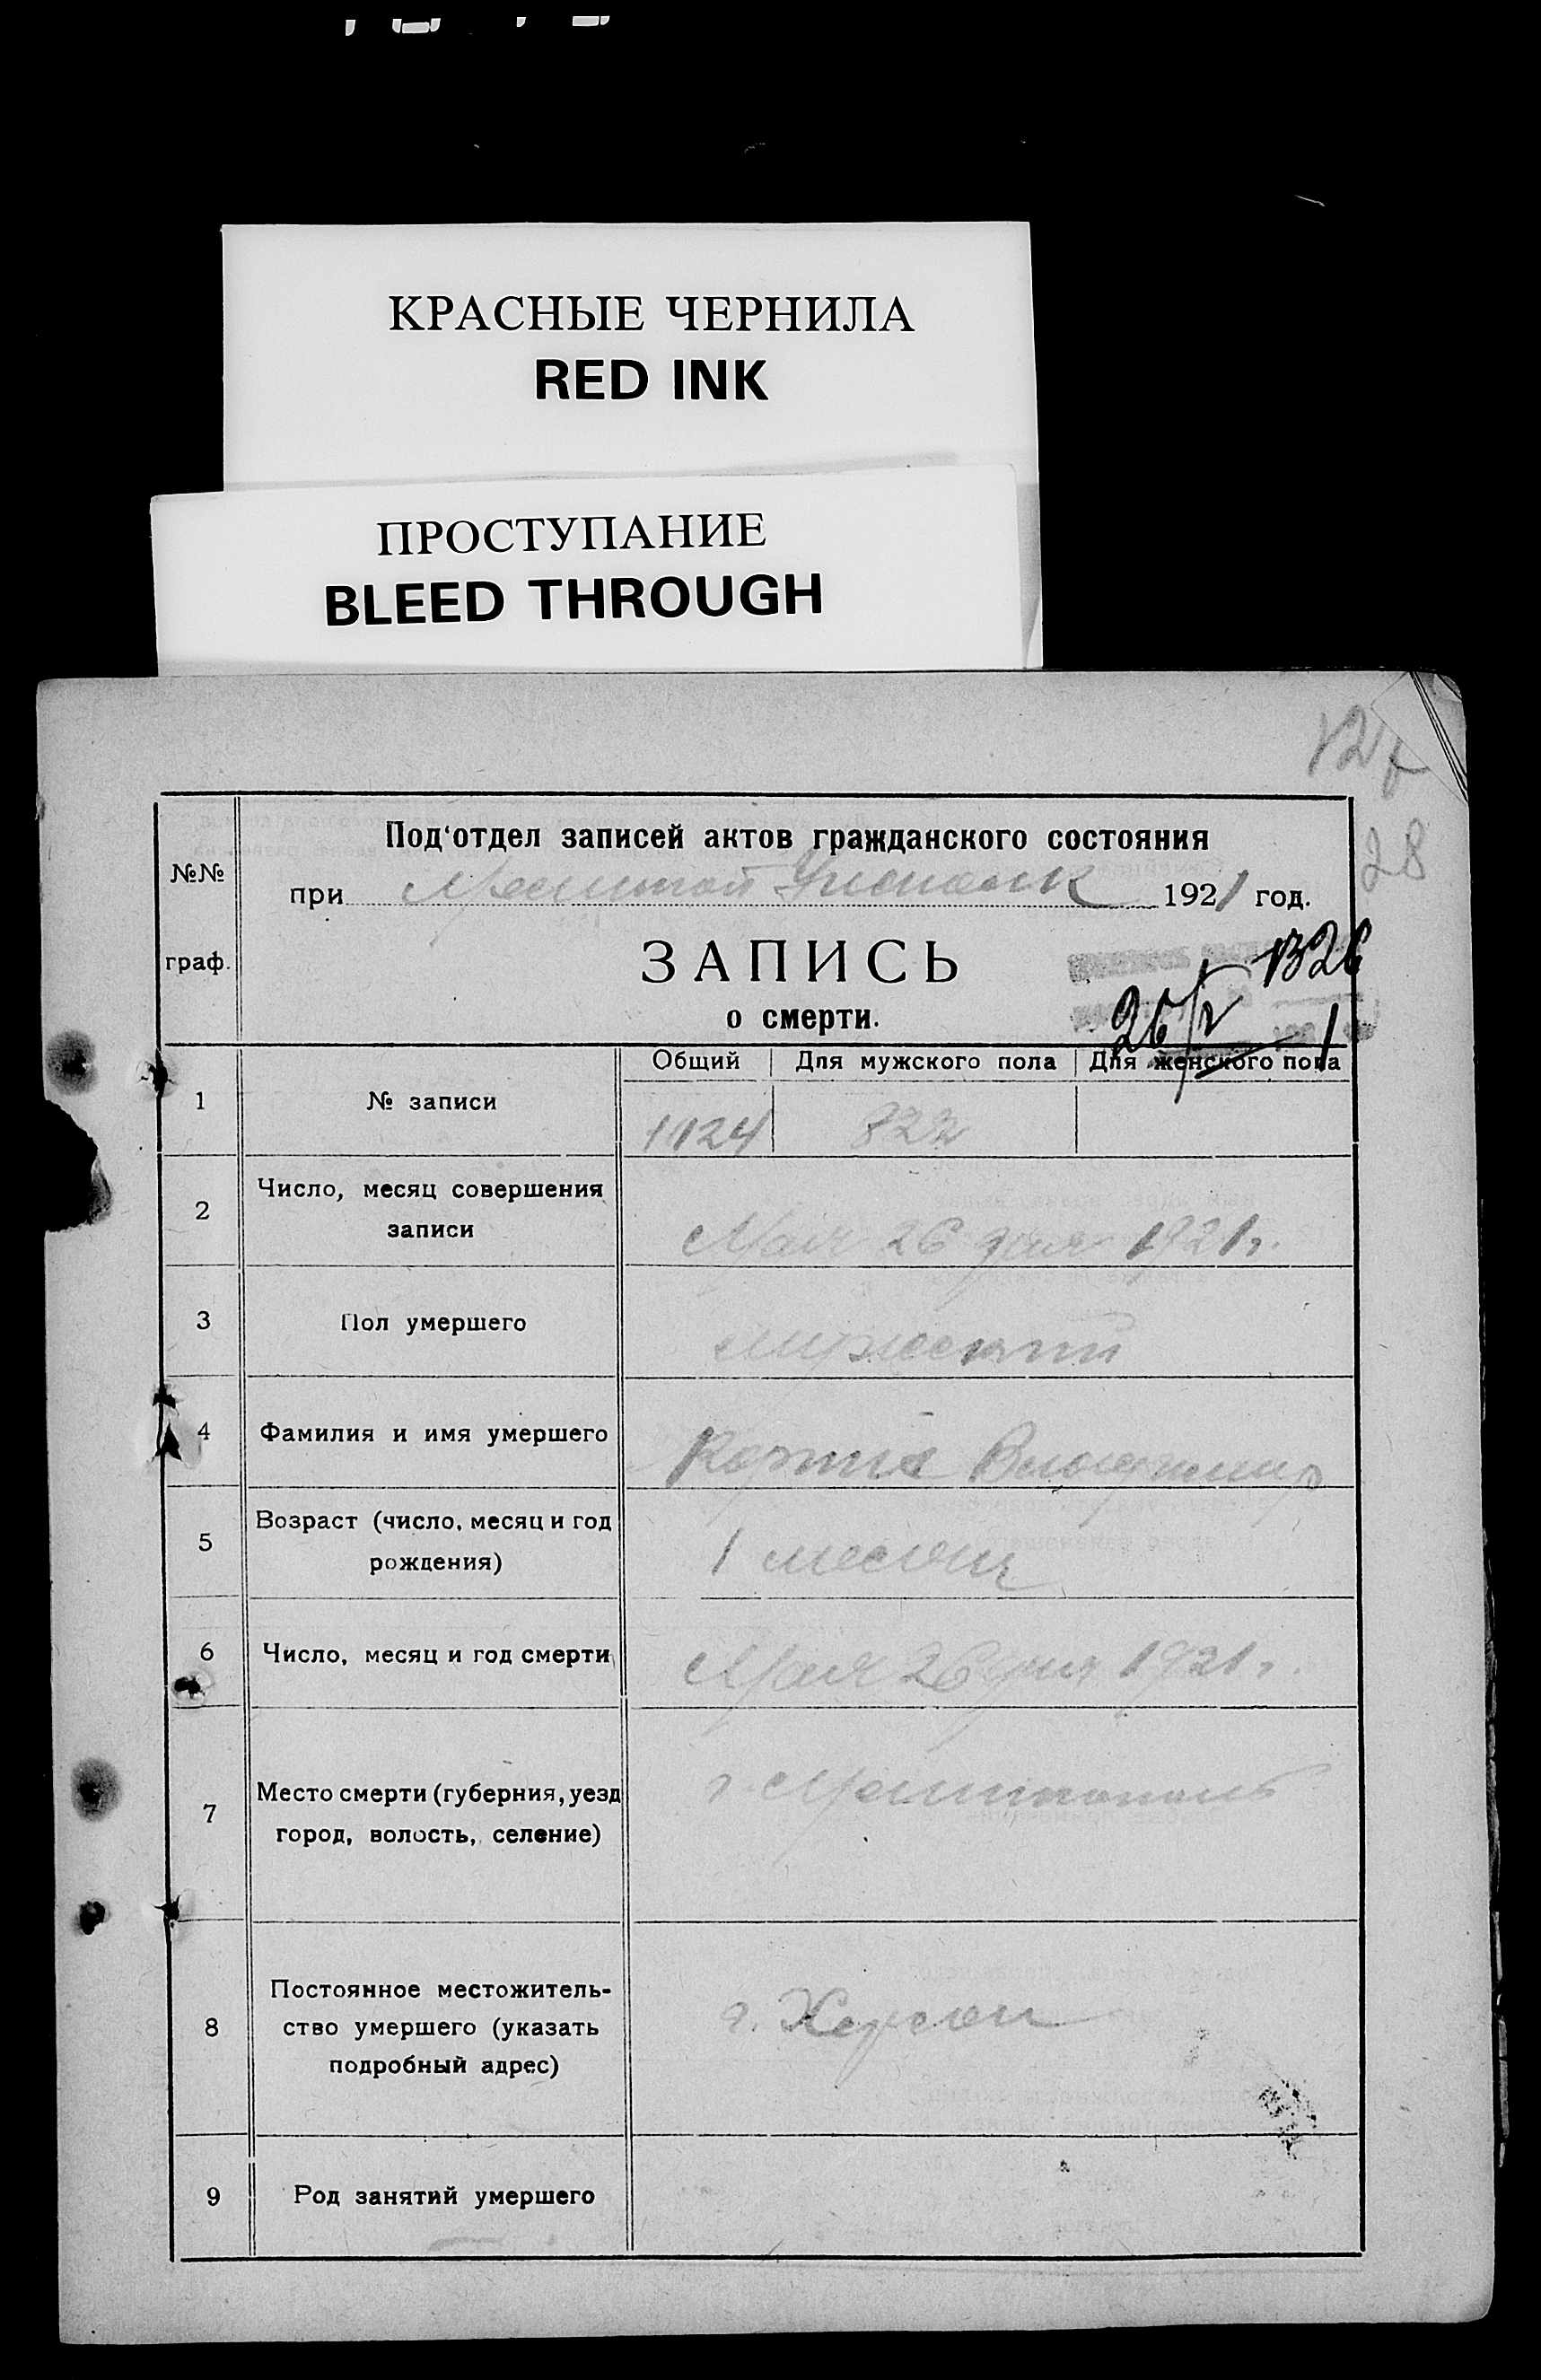 КРАСНЫЕ ЧЕРНИЛА
RED INK
ПРОСТУПАНИЕ
BLEED THROUGH
28
№№
граф.
Под‘отдел записей актов гражданского состояния
при 1921 год.
ЗАПИСЬ
о смерти.
1326
26/V
1
Общий Для мужского пола Для женского пола
1 № записи 1124 822
2 Число, месяц совершения
записи Мая 26 дня 1921 г.
3 Пол умершего мужской
4 Фамилия и имя умершего Владимир
5 Возраст (число, месяц и год
рождения) 1 месяц
6 Число, месяц и год смерти Мая 26 дня 1921 г.
7 Место смерти (губерния, уезд
город, волость, селение) г. Мелитополь
8 Постоянное местожитель-
ство умершего (указать
подробный адрес) г. Херсон
9 Род занятий умершего